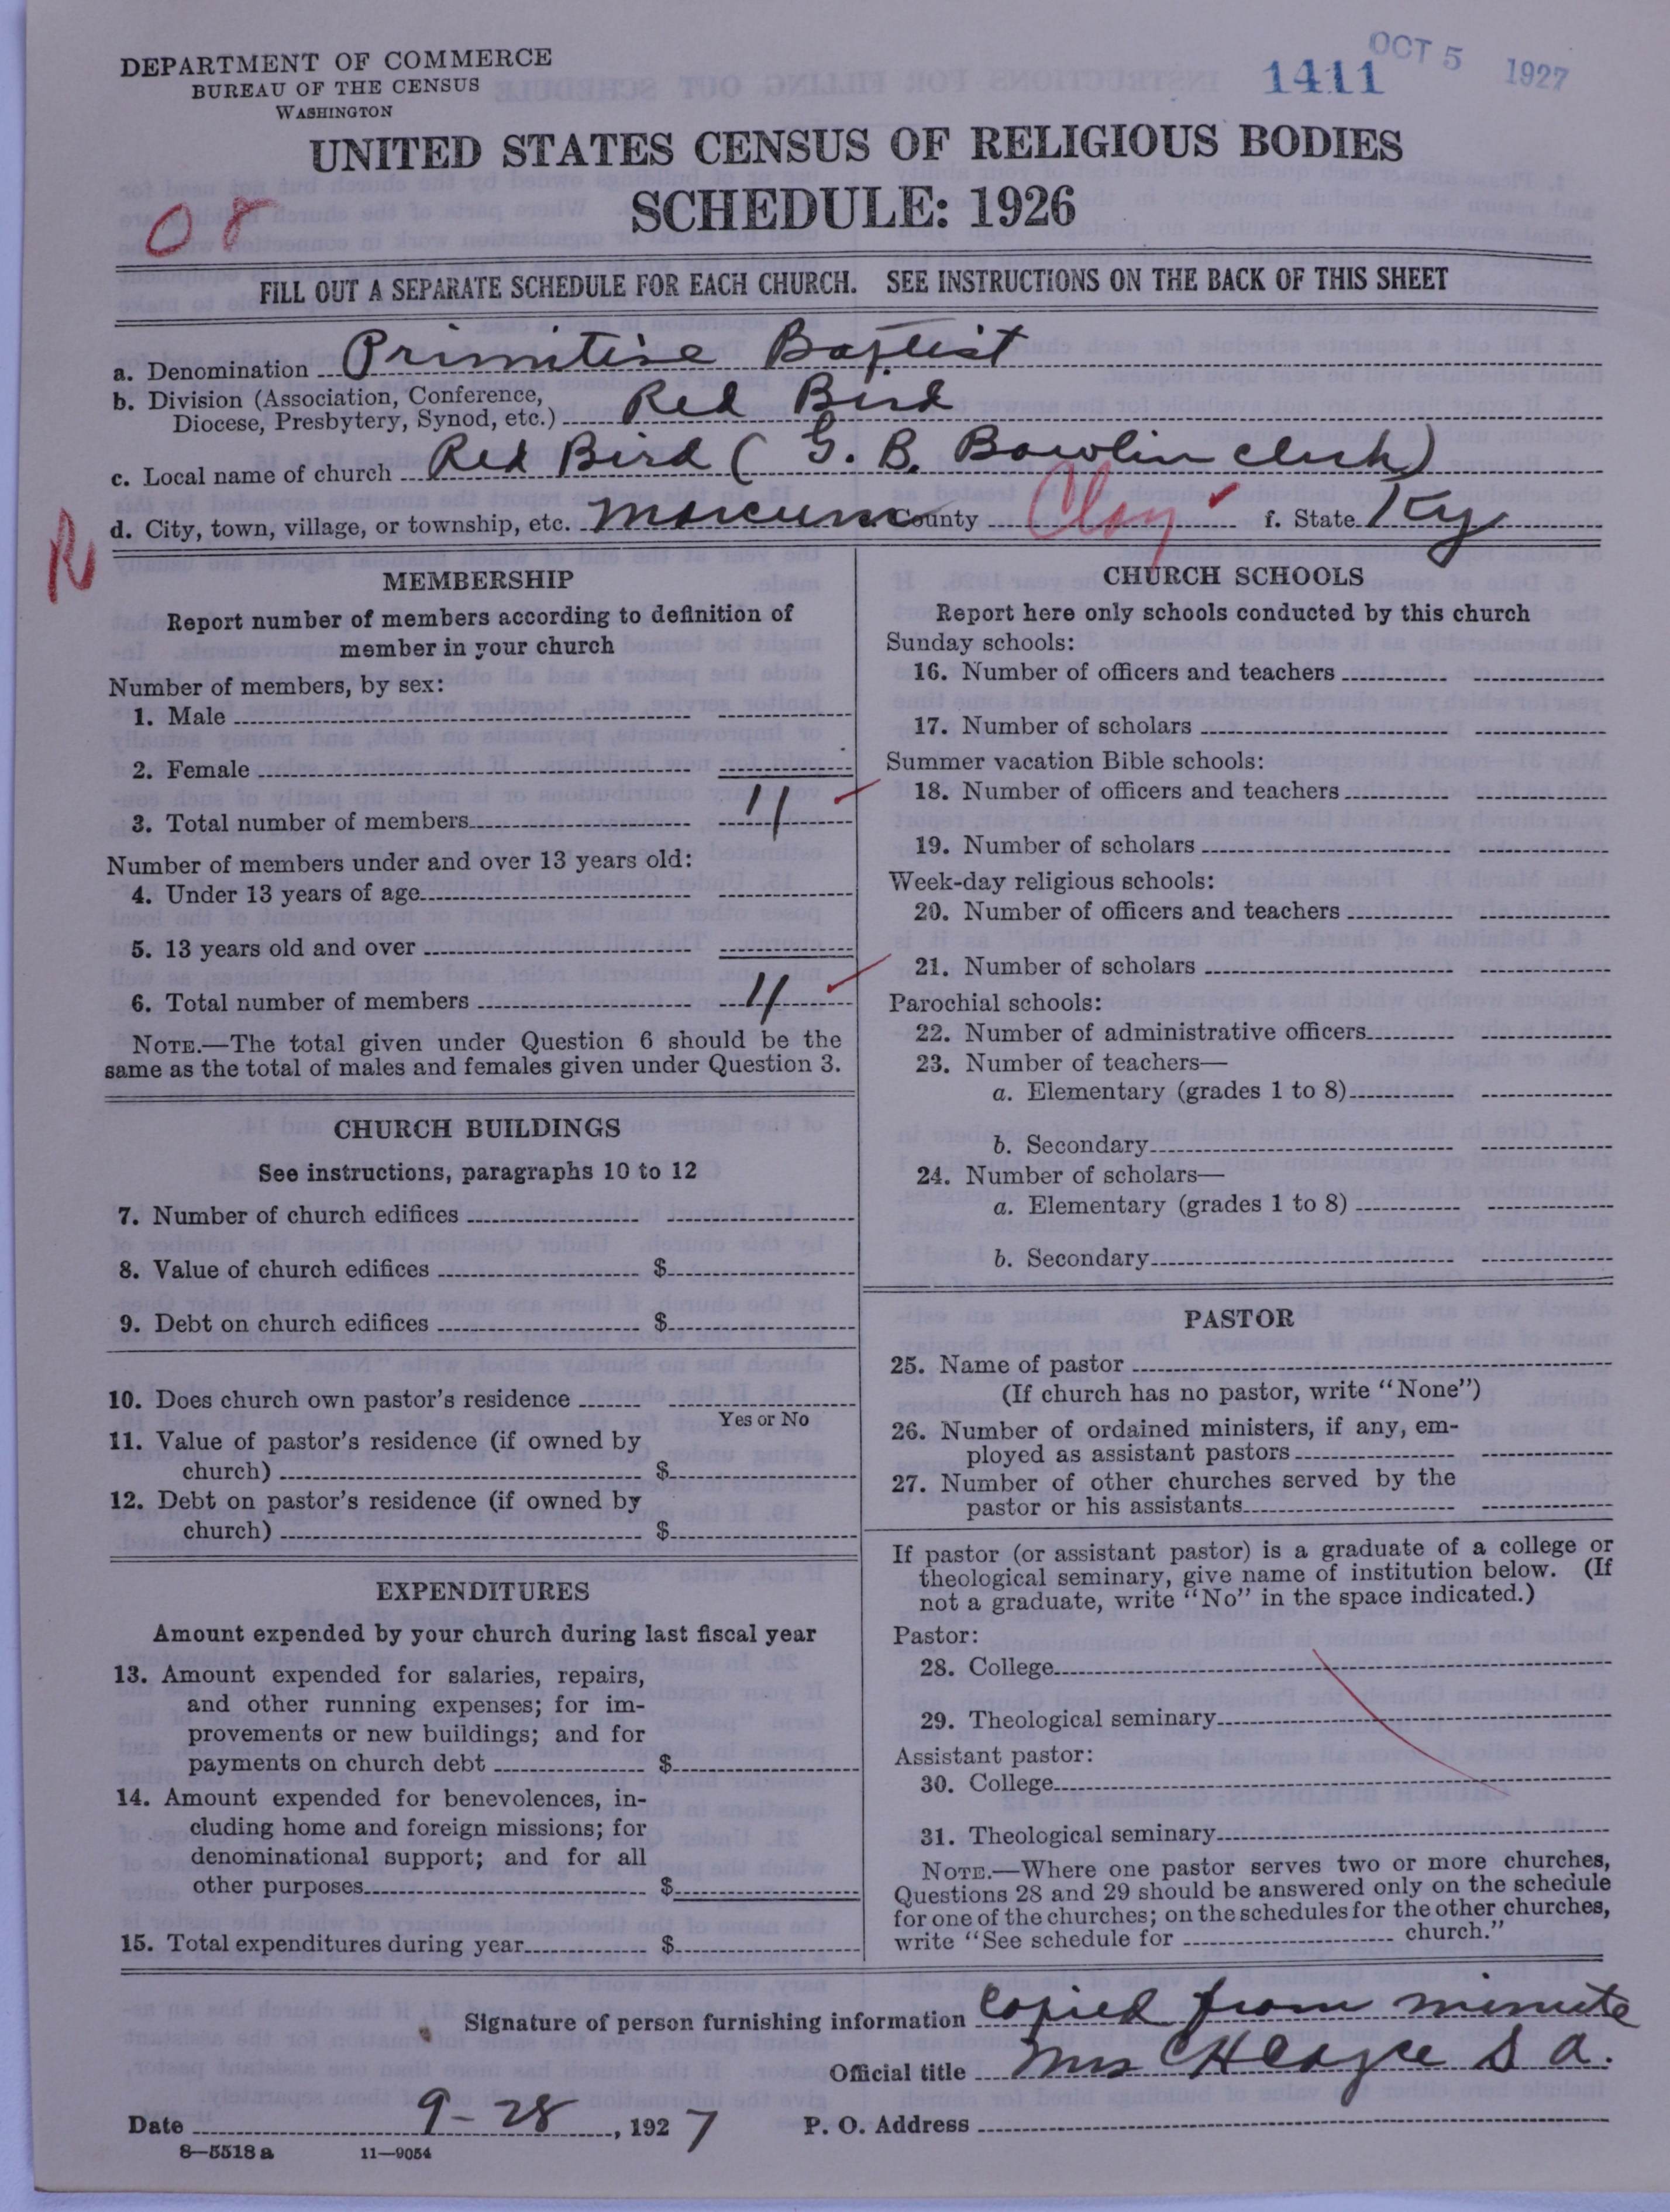 DEPARTMENT OF COMMERCE
BUREAU OF THE CENSUS
WASHINGTON
1411
OCT 5 1927
UNITED STATES CENSUS OF RELIGIOUS BODIES
SCHEDULE: 1926
FILL OUT A SEPARATE SCHEDULE FOR EACH CHURCH. SEE INSTRUCTIONS ON THE BACK OF THIS SHEET
a. Denomination Primitive Baptist
b. Division (Association, Conference,
Diocese, Presbytery, Synod, etc.) Red Bird
c. Local name of church Red Bird (G. B. Bowlin clerk)
d. City, town, village, or township, etc. Marcum e. County Clay f. State Ky
R
MEMBERSHIP
Report number of members according to definition of
member in your church
Number of members, by sex:
1. Male
2. Female
3. Total number of members 11
Number of members under and over 13 years old:
4. Under 13 years of age
5. 13 years old and over
6. Total number of members 11
NOTE.—The total given under Question 6 should be the
same as the total of males and females given under Question 3.
CHURCH BUILDINGS
See instructions, paragraphs 10 to 12
7. Number of church edifices
8. Value of church edifices $
9. Debt on church edifices $
10. Does church own pastor's residence
Yes or No
11. Value of pastor's residence (if owned by
church) $
12. Debt on pastor's residence (if owned by
church) $
EXPENDITURES
Amount expended by your church during last fiscal year
13. Amount expended for salaries, repairs,
and other running expenses; for im-
provements or new buildings; and for
payments on church debt $
14. Amount expended for benevolences, in-
cluding home and foreign missions; for
denominational support; and for all
other purposes $
15. Total expenditures during year $
CHURCH SCHOOLS
Report here only schools conducted by this church
Sunday schools:
16. Number of officers and teachers
17. Number of scholars
Summer vacation Bible schools:
18. Number of officers and teachers
19. Number of scholars
Week-day religious schools:
20. Number of officers and teachers
21. Number of scholars
Parochial schools:
22. Number of administrative officers
23. Number of teachers—
a. Elementary (grades 1 to 8)
b. Secondary
24. Number of scholars—
a. Elementary (grades 1 to 8)
b. Secondary
PASTOR
25. Name of pastor
(If church has no pastor, write "None")
26. Number of ordained ministers, if any, em-
ployed as assistant pastors
27. Number of other churches served by the
pastor or his assistants
If pastor (or assistant pastor) is a graduate of a college or
theological seminary, give name of institution below. (If
not a graduate, write "No" in the space indicated.)
Pastor:
28. College
29. Theological seminary
Assistant pastor:
30. College
31. Theological seminary
NOTE.—Where one pastor serves two or more churches,
Questions 28 and 29 should be answered only on the schedule
for one of the churches; on the schedules for the other churches,
write "See schedule for church."
Signature of person furnishing information copied from minute
Official title Mrs C H S A.
Date 9-28, 1927 P. O. Address
8—5518 a 11—9054